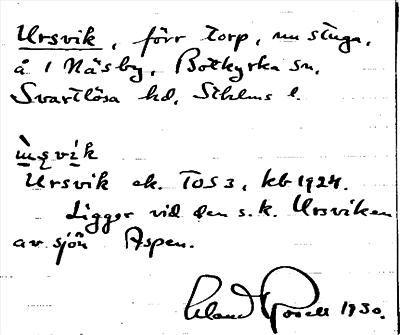 Ursvik, förr torp, nu stuga,
å 1 Näsby, Botkyrka sn,
Svartlösa hd, Sthlms l.
Ursvik ek. TOS3, kb 1924.
Ligger vid den s.k. Ursviken
av sjön Aspen.
Erland Rosell 1930.